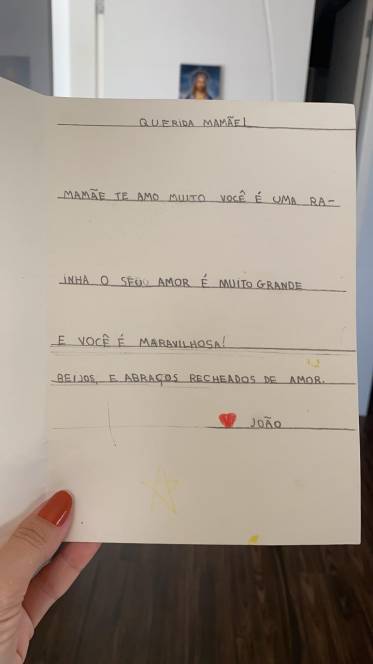 QUERIDA MAMÃE!
MAMÃE TE AMO MUITO VOCÊ É UMA RA-
INHA O SEU AMOR É MUITO GRANDE
E VOCÊ É MARAVILHOSA!
BEIJOS, E ABRAÇOS RECHEADOS DE AMOR.
JOÃO